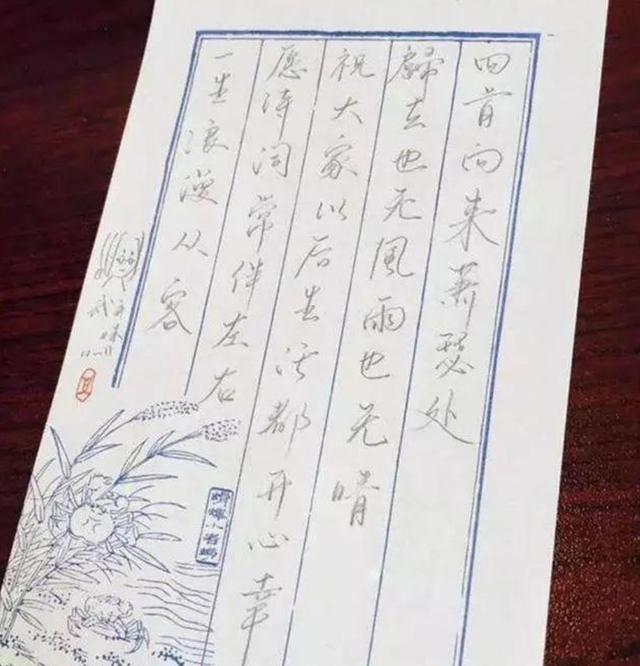 回首向来萧瑟处
歸去也无風雨也无晴
祝大家以后生活都开心幸
愿诗词常伴左右
一生浪漫从容
武亦姝